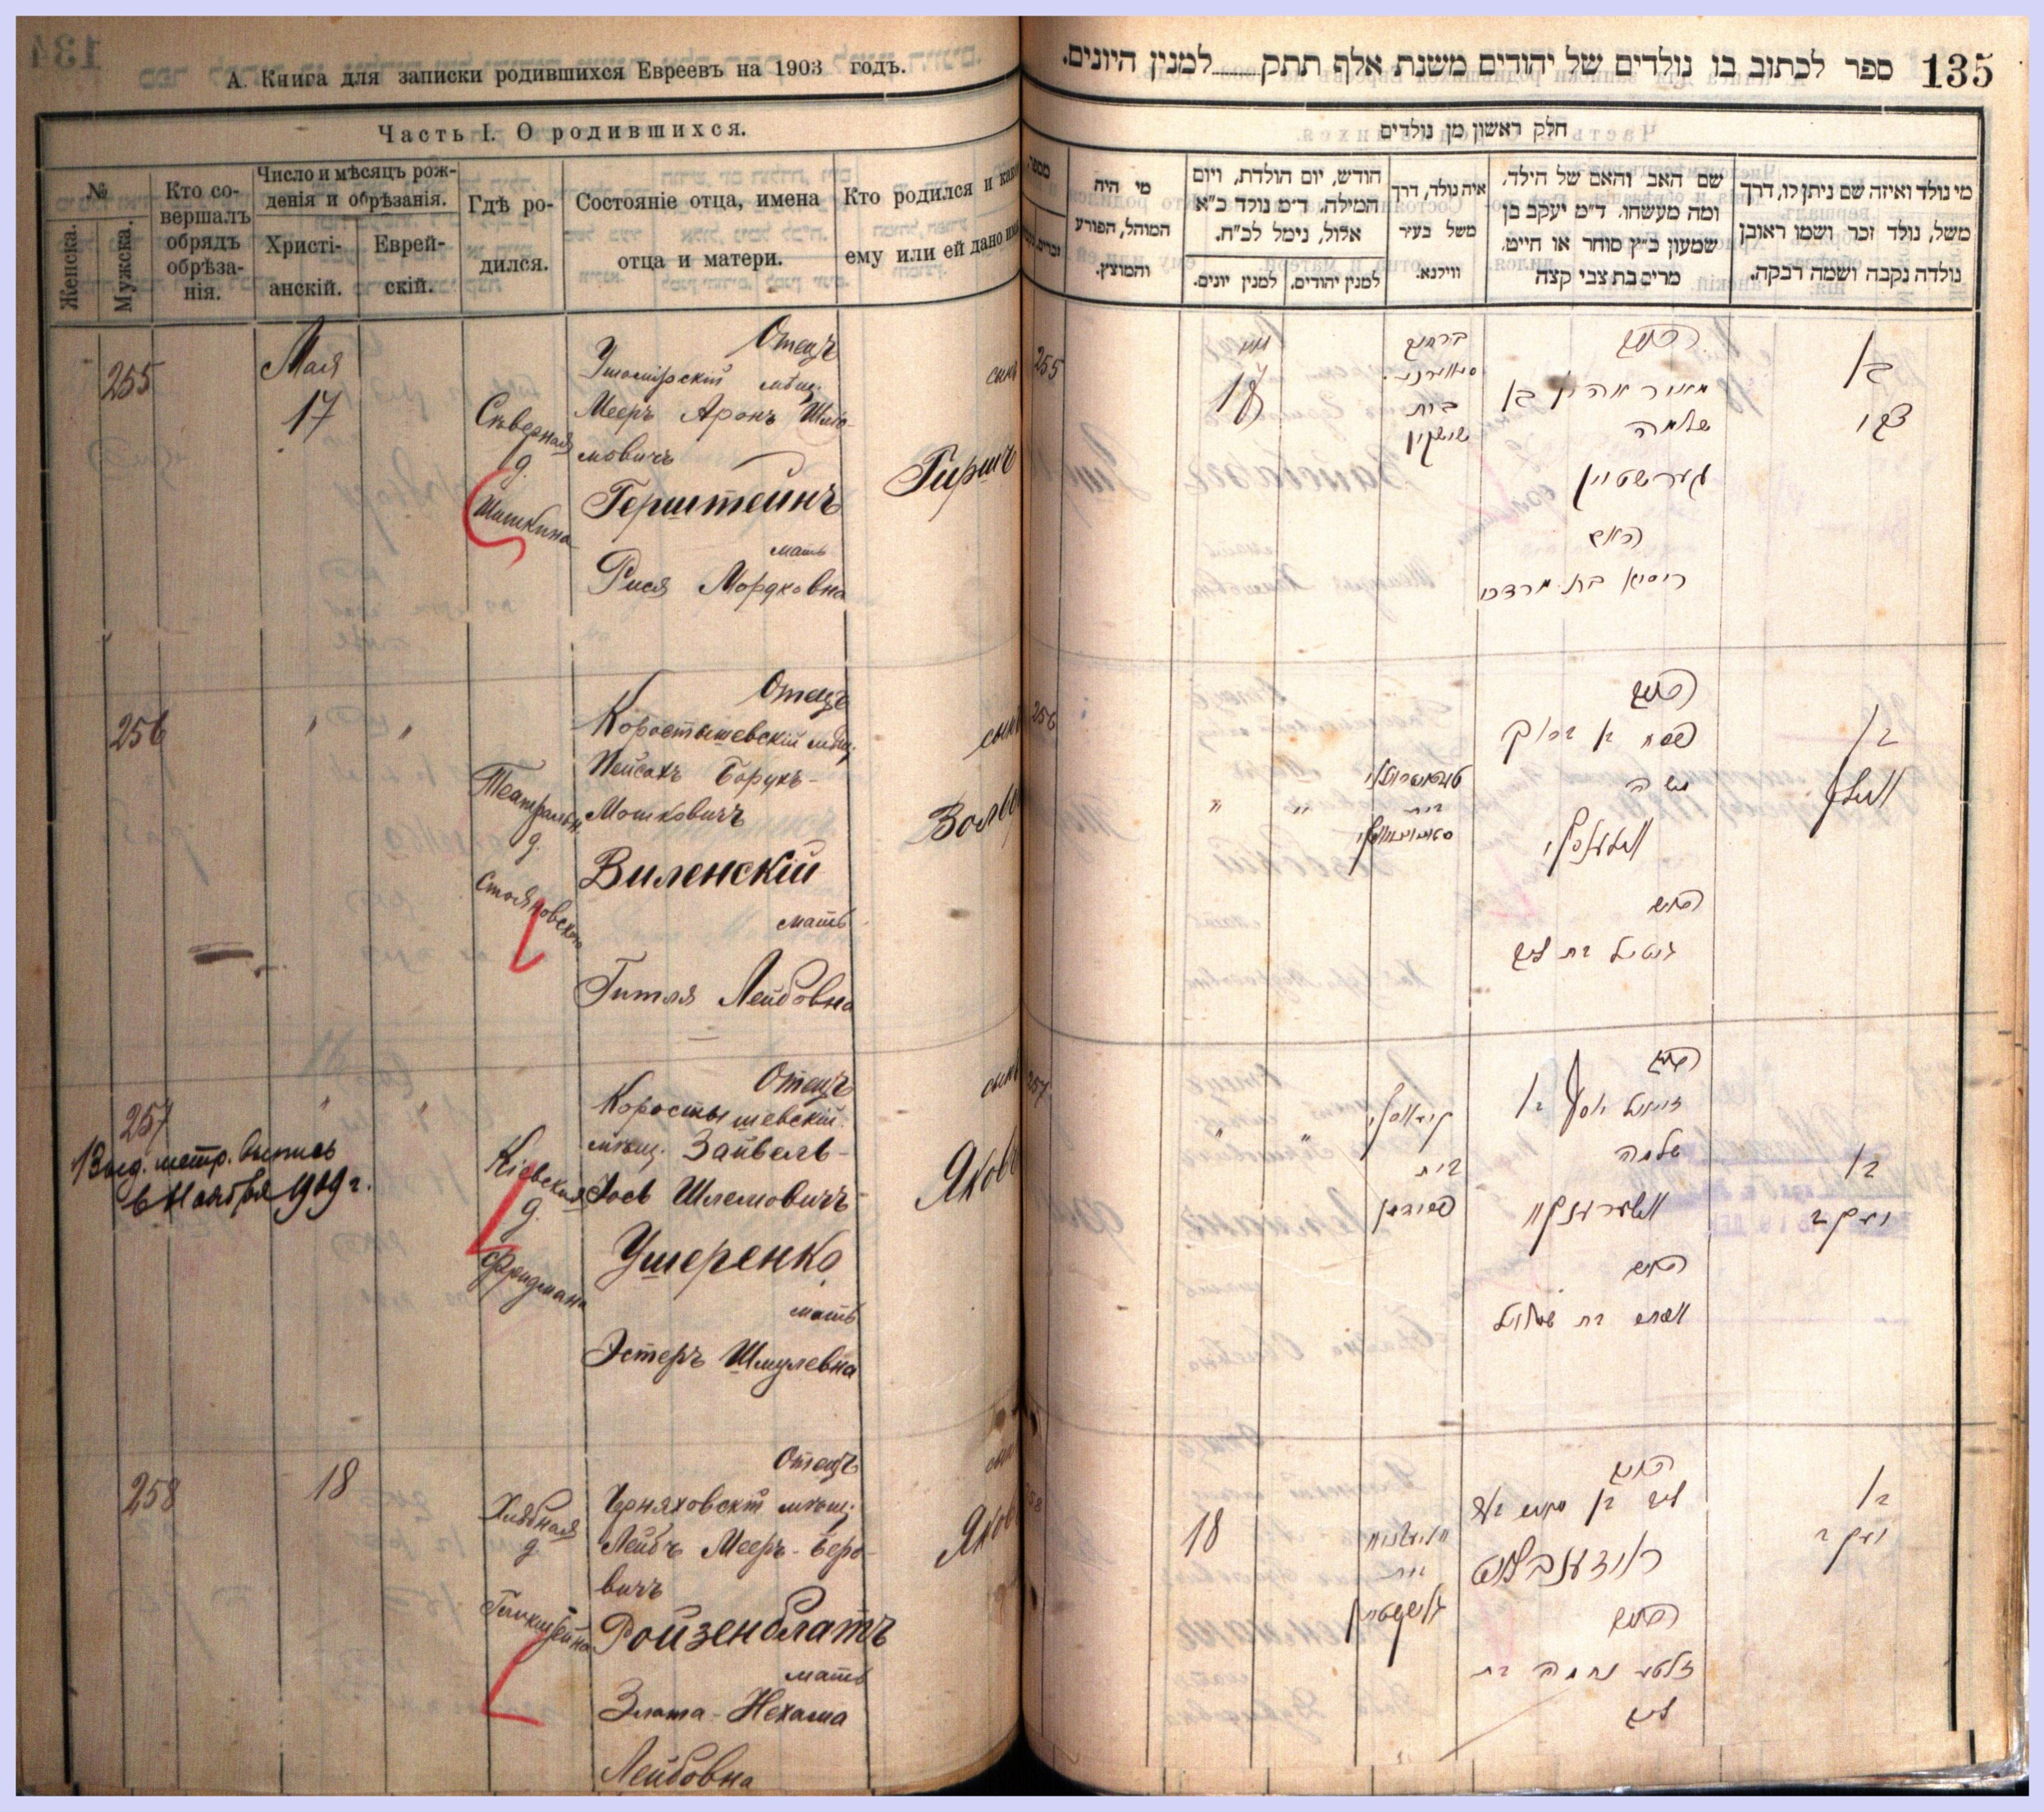 А. Книга для записки родившихся Евреевъ на 1903 годъ.
Часть I. О родившихся.
№
Женска.
Мужска.
Кто со-
вершалъ
обрядъ
обрѣза-
нія.
Число и мѣсяцъ рож-
денія и обрѣзанія.
Христі-
анскій.
Еврей-
скій.
Гдѣ ро-
дился.
Состояніе отца, имена
отца и матери.
Кто родился и какое
ему или ей дано имя
255
Мая
17
Скверная
д.
Шишкина
Отецъ
Ушомірскій мѣщ.
Мееръ Аронъ Шлио-
мовичъ
Герштейнъ
мать
Рися Мордковна
сынъ
Гиршъ
256
" "
Театральн.
д.
Стояновского
Отецъ
Коростышевскій мѣщ.
Пейсахъ Борухъ-
Мошковичъ
Виленскій
мать
Гитля Лейбовна
сынъ
Вольф
257
" "
Выд. метр. выпись
6 Ноября 1909 г.
Кіевская
д.
Фридмана
Отецъ
Коростышевскій
мѣщ. Зайвель-
Іосъ Шлемовичъ
Ушеренко
мать
Эстеръ Шмулевна
сынъ
Яковъ
258
18
Хлѣбная
д.
Отецъ
Черняховскій мѣщ.
Лейбъ Мееръ-Беро-
вичъ
Ройзенблатъ
мать
Злата-Нехама
Лейбовна
сынъ
Яковъ
135
ספר לכתוב בו נולדים של יהודים משנת אלף תתק למנין היונים.
חלק ראשון מן נולדים
מי נולד ואיזה שם ניתן לו, דרך
משל, נולד זכר ושמו ראובן
נולדה נקבה ושמה רבקה.
שם האב והאם של הילד,
ומה מעשהו. ד"מ יעקב בן
שמעון כ"ץ סוחר או חייט.
מרים בת צבי קצה
איה נולד, דרך
משל בעיר
ווילנא.
חודש, יום הולדת, ויום
המילה. ד"מ נולד כ"א
אלול, נימל לכ"ח.
למנין יהודים.
למנין יונים.
מי היה
המוהל, הפורע
והמוצץ.
מספר
255
מאי
17
בית
שישקין
האב
מאיר אהרן בן
שלמה
גערשטיין
האם
ריסיא בת מרדכי
בן
צבי
256
" "
בית
האב
פסח בן ברוך
משה
ווילענסקי
האם
גיטל בת ליב
בן
וואלף
257
" "
בית
פרידמן
האב
זיוויל יוסף בן
שלמה
אושערענקא
האם
אסתר בת שמואל
בן
יעקב
258
18
בית
האב
ליב בן מאיר בער
רויזענבלאט
האם
זלטע נחמה בת
ליב
בן
יעקב